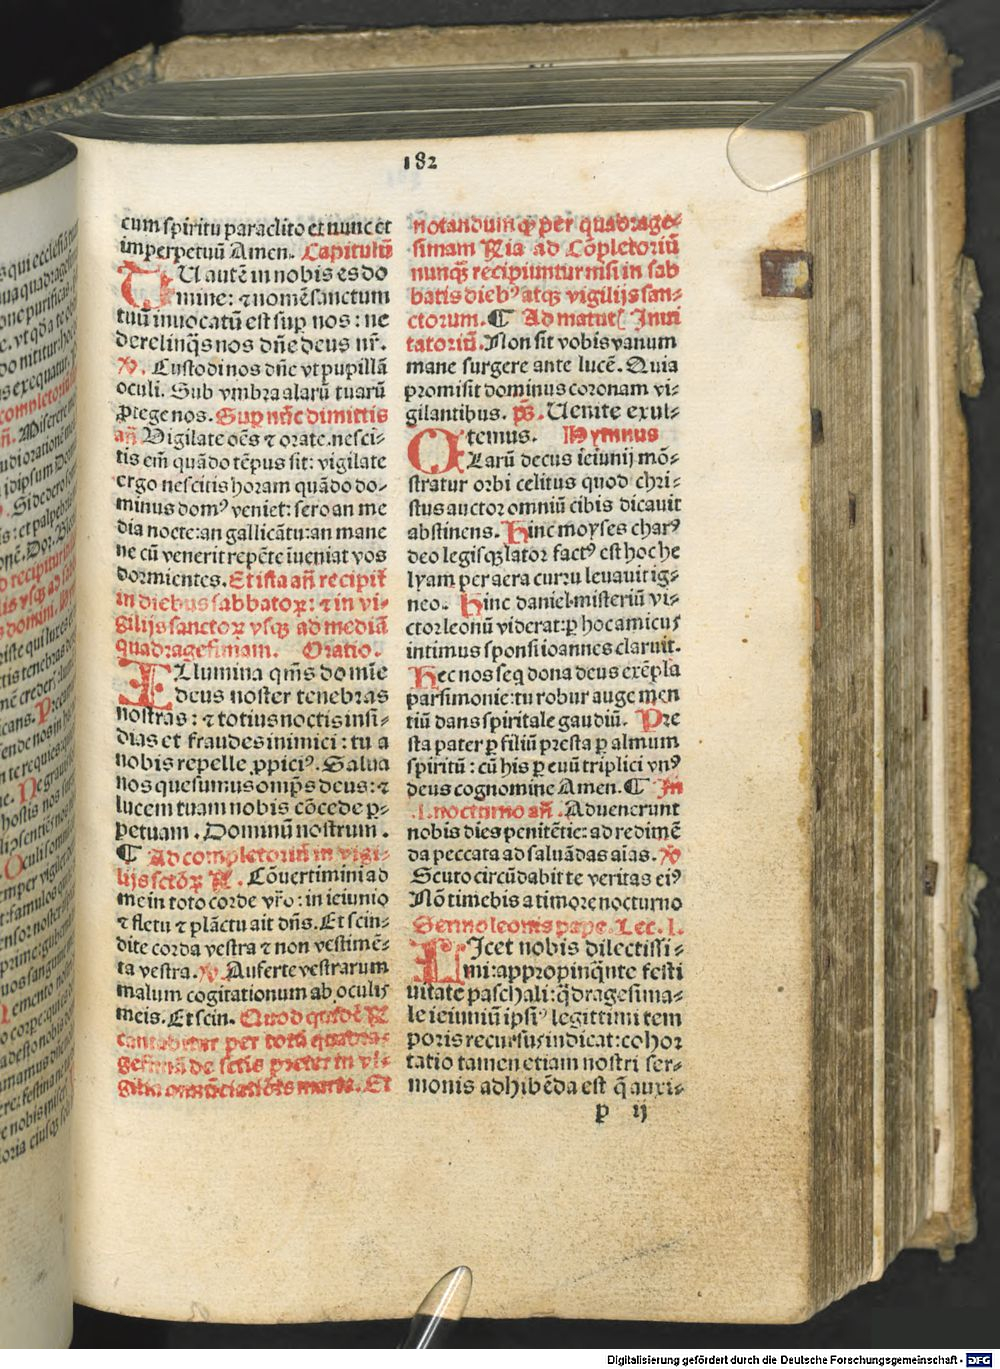 182
cum spiritu paraclito et nunc et
imperpetuū Amen. Capitulū
TU autē in nobis es do
mine: ⁊ nomē sanctum
tuū inuocatū est suꝑ nos: ne
derelinq̄s nos dn̄e deus nr̄.
℣. Custodi nos dn̄e vt pupillā
oculi. Sub vmbra alarū tuarū
ꝓtege nos. Suꝑ nūc dimittis
an̄ Uigilate oēs ⁊ orate. nesci-
tis em̄ quādo tēpus sit: vigilate
ergo nescitis horam quādo do-
minus domꝰ veniet: sero an me
dia nocte: an gallicātu: an mane
ne cū venerit repēte īueniat vos
dormientes. Et ista an̄ recipit̄
in diebus sabbatoꝝ: ⁊ in vi-
gilijs sanctoꝝ vsqꝫ ad mediā
quadragesimam. Oratio.
ILlumina qm̄s domīe
deus noster tenebras
nostras: ⁊ totius noctis insi-
dias et fraudes inimici: tu a
nobis repelle ꝓpiciꝰ. Salua
nos quesumus omp̄s deus: ⁊
lucem tuam nobis cōcede ꝑ-
petuam. Dominū nostrum.
¶ Ad completoriū in vigi-
lijs sctōꝝ ℟. Cōuertimini ad
me in toto corde vr̄o: in ieiunio
⁊ fletu ⁊ plāctu ait dn̄s. Et scin-
dite corda vestra ⁊ non vestimē-
ta vestra. ℣. Auferte vestrarum
malum cogitationum ab oculis
meis. Et scin. Quod quidē ℟
cantabitur per totā quadra-
gesimā de sctis preter in vi-
gilia annūciatiōis marie. Et
notandum qꝙ per quadrage-
simam ℟ia ad Cōpletoriū
nunqꝫ recipiuntur nisi in sab
batis diebꝰ atqꝫ vigilijs san-
ctorum. ¶ Ad matut. Inui
tatoriū. Non sit vobis vanum
mane surgere ante lucē. Quia
promisit dominus coronam vi-
gilantibus. ps̄. Uenite exul-
temus. Hymnus
CLarū decus ieiunij mō-
stratur orbi celitus quod chri-
stus auctor omniū cibis dicauit
abstinens. Hinc moyses charꝰ
deo legisqꝫ lator factꝰ est hoc he
lyam per aera curru leuauit ig-
neo. Hinc daniel misteriū vi-
ctor leonū viderat: ꝑ hoc amicus
intimus sponsi ioannes claruit.
Hec nos seq̄ dona deus exēpla
parsimonie: tu robur auge men
tiū dans spiritale gaudiū. Pre
sta pater ꝑ filiū presta ꝑ almum
spiritū: cū his ꝑ euū triplici vnꝰ
deus cognomine Amen. ¶ In
.I. nocturno an̄. Aduenerunt
nobis dies penitētie: ad redimē
da peccata ad saluādas aīas. ℣
Scuto circūdabit te veritas eiꝰ
Nō timebis a timore nocturno
Sermo leonis pape. Lec. I.
LIcet nobis dilectissi-
mi: appropinq̄nte festi
uitate paschali: q̄dragesima-
le ieiuniū ipsiꝰ legittimi tem
poris recursus indicat: cohor
tatio tamen etiam nostri ser-
monis adhibēda est q̄ auxi-
p ij
Digitalisierung gefördert durch die Deutsche Forschungsgemeinschaft - DFG